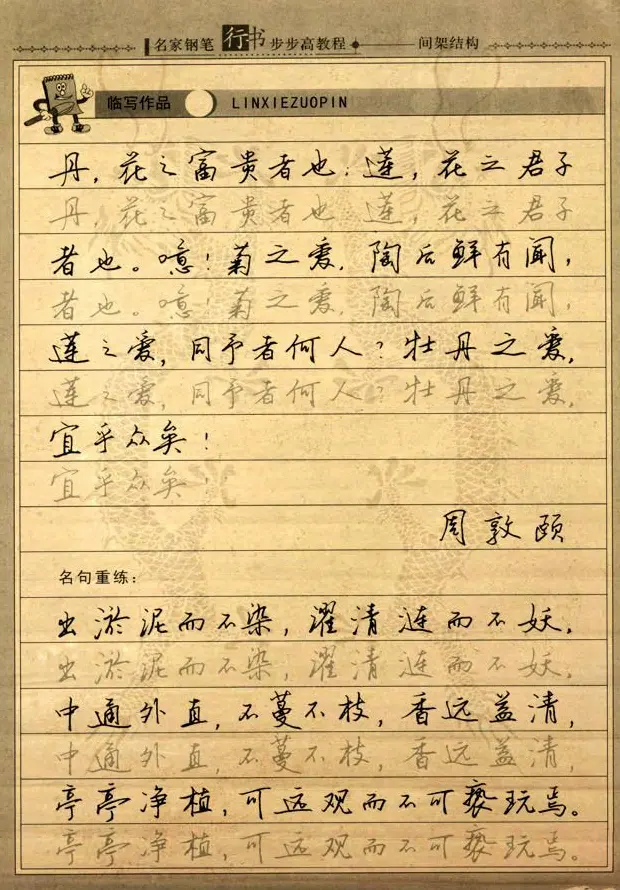 名家钢笔 行书 步步高教程 间架结构
临写作品 LINXIEZUOPIN
丹，花之富贵者也；莲，花之君子
丹，花之富贵者也 莲，花之君子
者也。噫！菊之爱，陶后鲜有闻，
者也。噫！菊之爱，陶后鲜有闻，
莲之爱，同予者何人？牡丹之爱，
莲之爱，同予者何人？牡丹之爱，
宜乎众矣！
宜乎众矣！
周敦颐
名句重练：
出淤泥而不染，濯清涟而不妖，
出淤泥而不染，濯清涟而不妖，
中通外直，不蔓不枝，香远益清，
中通外直，不蔓不枝，香远益清，
亭亭净植，可远观而不可亵玩焉。
亭亭净植，可远观而不可亵玩焉。